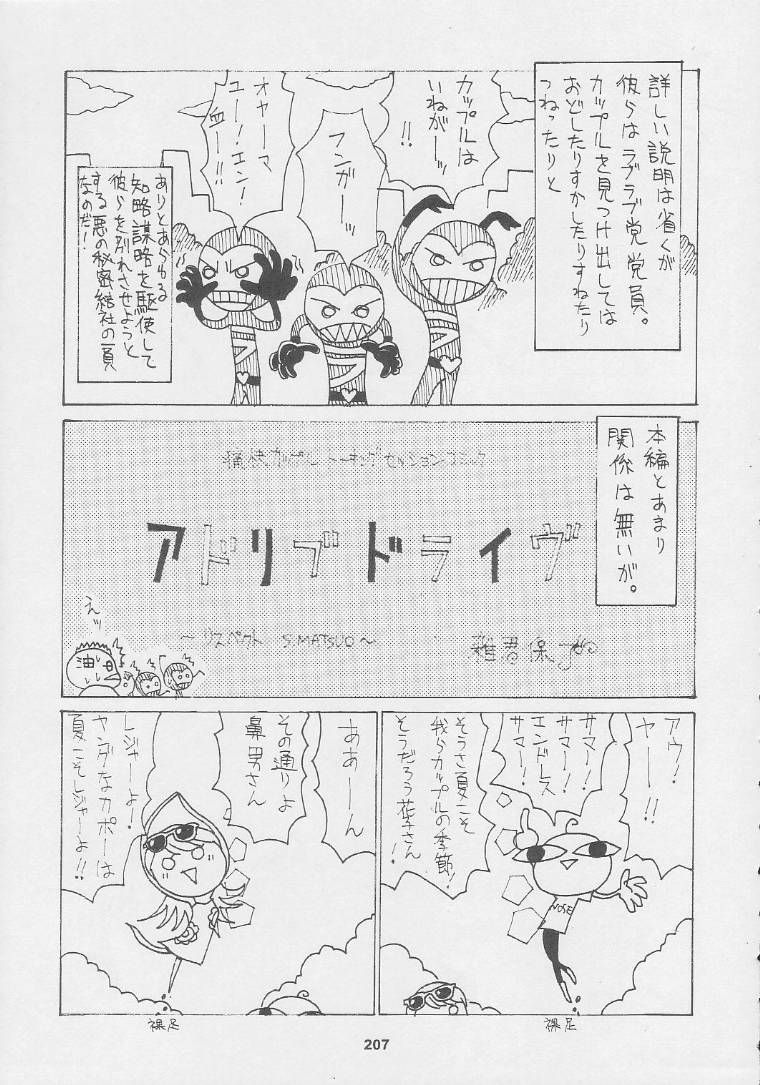 詳しい説明は省くが
彼らはラブラブ党党員。
カップルを見つけ出しては
おどしたりすかしたりすねたり
つねったりと
カップルは
いねがーッ
!!
フンガーッ
オヤーマ
ユーノエン!
血ー!!
ありとあらゆる
知略謀略を駆使して
彼らを別れさせようと
する悪の秘密結社の一員
なのだ!
ラブ
本編とあまり
関係は無いが。
痛快カップルトーキングセッションコミック
アドリブドライヴ
〜リスペクト S.MATSUO〜
雑君保プ
えッ
油
アウ!
ヤー!!
サマー!
サマー!
エンドレス
サマー!
そうさ夏こそ
我らカップルの季節!
そうだろう花子さん!
NOSE
裸足
ああーん
その通りよ
鼻男さん
レジャーよ!
ヤングなカポーは
夏こそレジャーよ!!
裸足
207